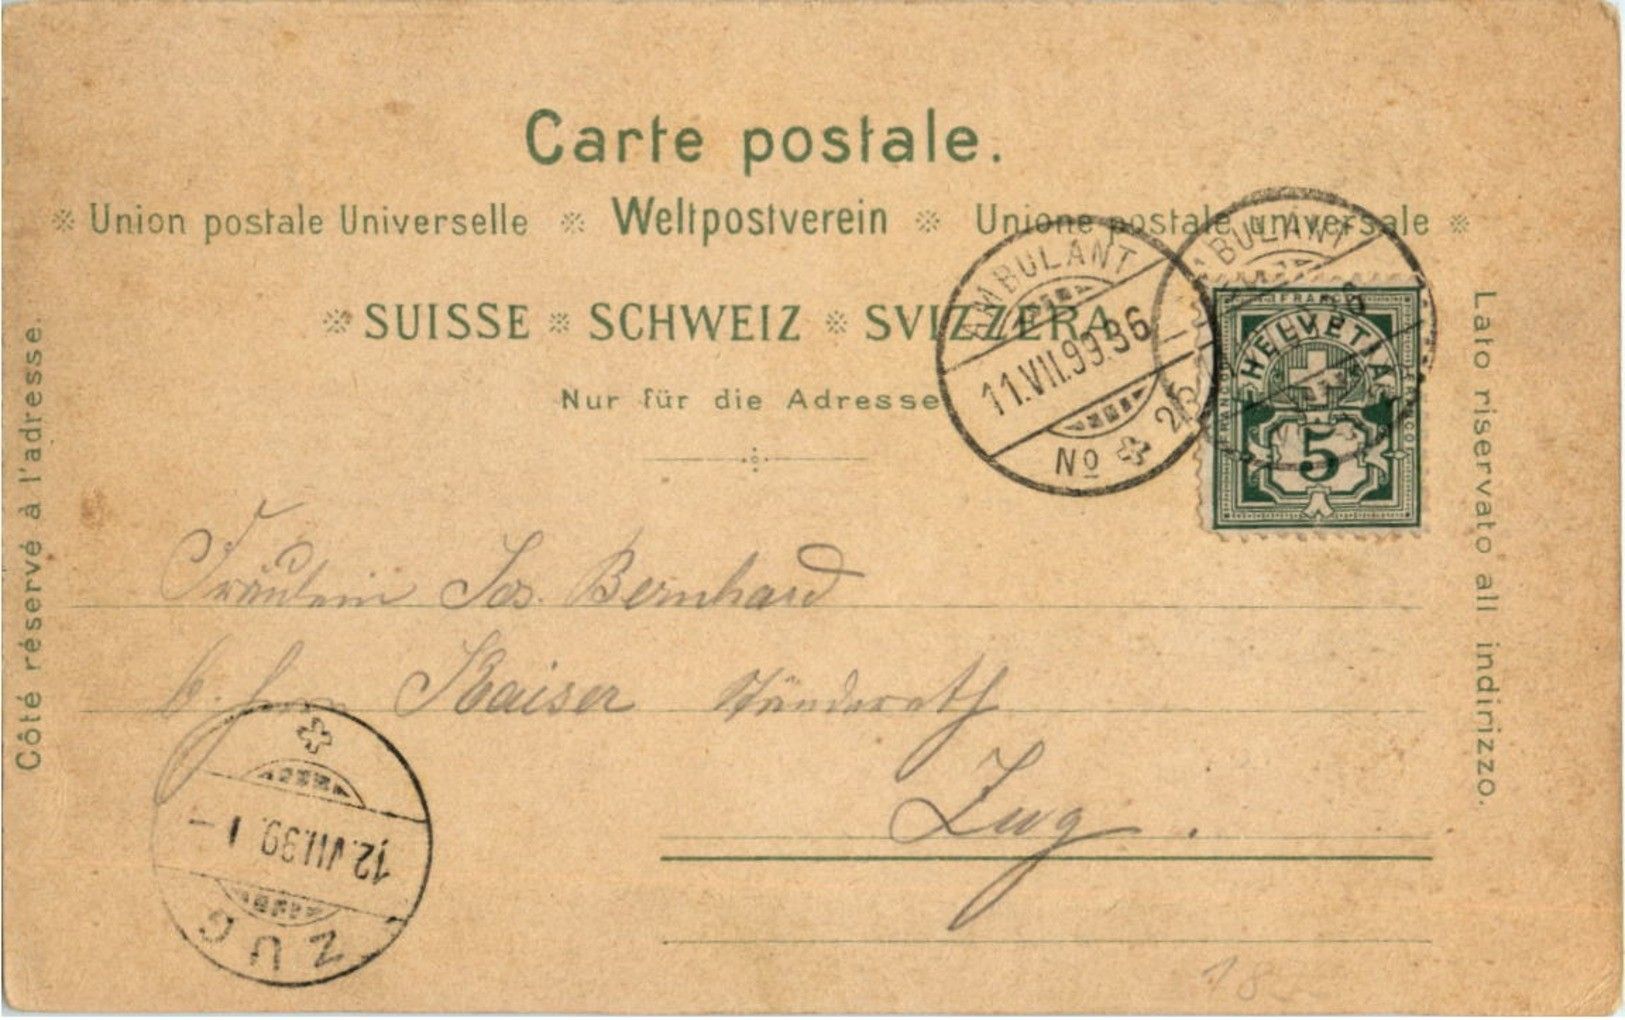 Carte postale.
Union postale Universelle Weltpostverein Unione postale universale
SUISSE SCHWEIZ SVIZZERA
Nur für die Adresse
Côté réservé à l'adresse.
Lato riservato all indirizzo.
AMBULANT
11.VII.99.96
No 25
AMBULANT
FRANCO
HELVETIA
5
Fräulein Jos. Bernhard
b. Kaiser Ständerath
Zug.
12.VII.99.1-
ZUG